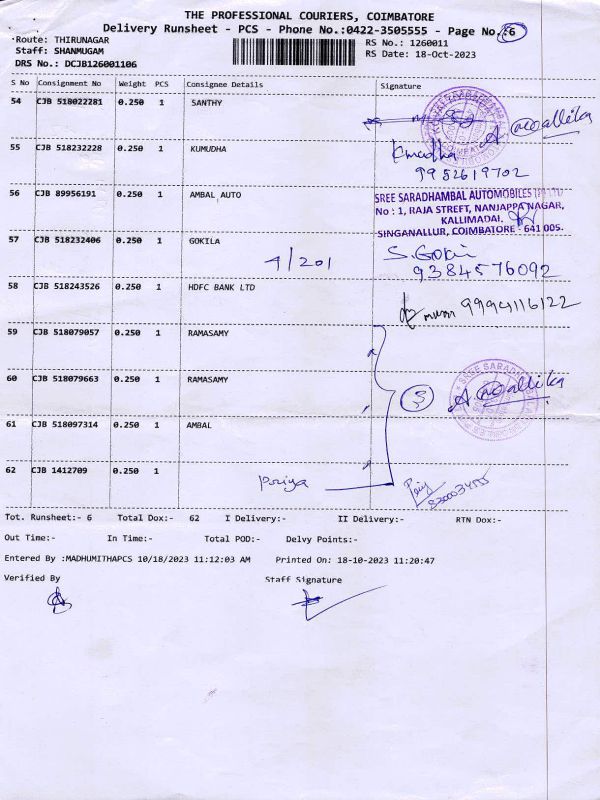 THE PROFESSIONAL COURIERS, COIMBATORE
Delivery Runsheet - PCS - Phone No.:0422-3505555 - Page No.:6
Route: THIRUNAGAR
RS No.: 1260011
Staff: SHANMUGAM
RS Date: 18-Oct-2023
DRS No.: DCJB126001106
S No Consignment No Weight PCS Consignee Details Signature
54 CJB 518022281 0.250 1 SANTHY
55 CJB 518232228 0.250 1 KUMUDHA Kmudha
9952619702
56 CJB 89956191 0.250 1 AMBAL AUTO
SREE SARADHAMBAL AUTOMOBILES
No : 1, RAJA STREET, NANJAPPA NAGAR,
KALLIMADAI,
SINGANALLUR, COIMBATORE - 641 005.
57 CJB 518232406 0.250 1 GOKILA
4/201
9384576092
58 CJB 518243526 0.250 1 HDFC BANK LTD 9994116122
59 CJB 518079057 0.250 1 RAMASAMY
60 CJB 518079663 0.250 1 RAMASAMY
61 CJB 518097314 0.250 1 AMBAL
62 CJB 1412709 0.250 1
Priya
Tot. Runsheet:- 6 Total Dox:- 62 I Delivery:- II Delivery:- RTN Dox:-
Out Time:- In Time:- Total POD:- Delvy Points:-
Entered By :MADHUMITHAPCS 10/18/2023 11:12:03 AM Printed On: 18-10-2023 11:20:47
Verified By Staff Signature